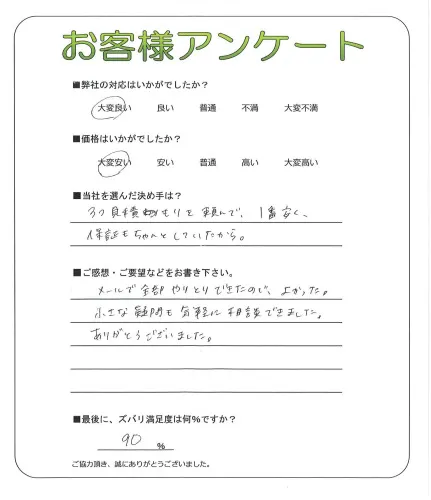 お客様アンケート
■弊社の対応はいかがでしたか?
大変良い 良い 普通 不満 大変不満
■価格はいかがでしたか?
大変安い 安い 普通 高い 大変高い
■当社を選んだ決め手は?
3つ見積もりを頼んで、1番安く、
保証もちゃんとしていたから。
■ご感想・ご要望などをお書き下さい。
メールで全部やりとりできたので、よかった。
小さな疑問も気軽に相談できました。
ありがとうございました。
■最後に、ズバリ満足度は何%ですか?
90 %
ご協力頂き、誠にありがとうございました。